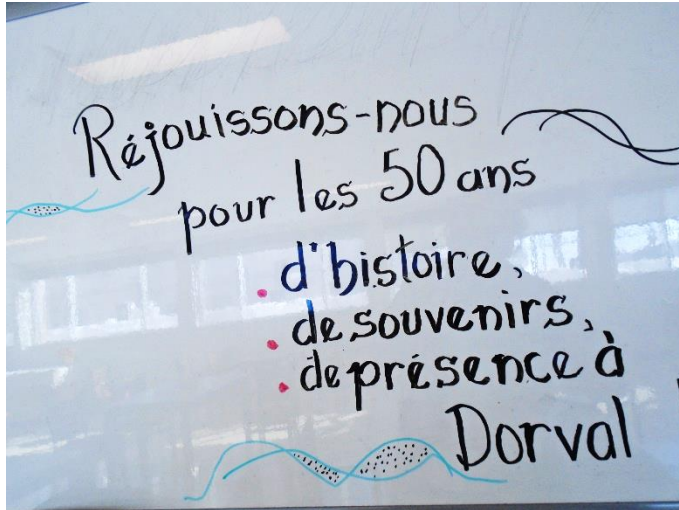 Réjouissons-nous
pour les 50 ans
. d'histoire,
. de souvenirs,
. de présence à
Dorval